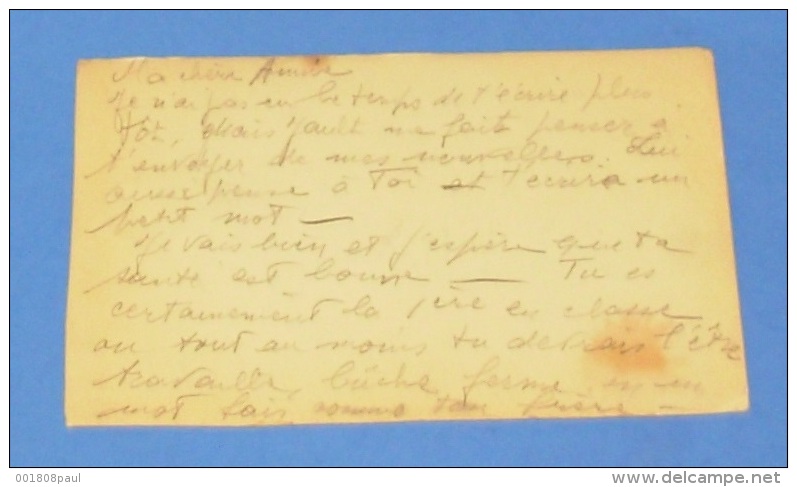 Ma chère Amie
Je n'ai pas eu le temps de t'écrire plus
tôt, Mais Gault m'a fait penser à
t'envoyer de mes nouvelles. Lui
aussi pense à Toi et t'écrira un
petit mot —
Je vais bien et j'espère que ta
santé est bonne — Tu es
certainement la 1ère en classe
ou tout au moins tu devrais l'être
travaille, bûche ferme, en un
mot fais comme ton frère —
001808paul
delcampe.net